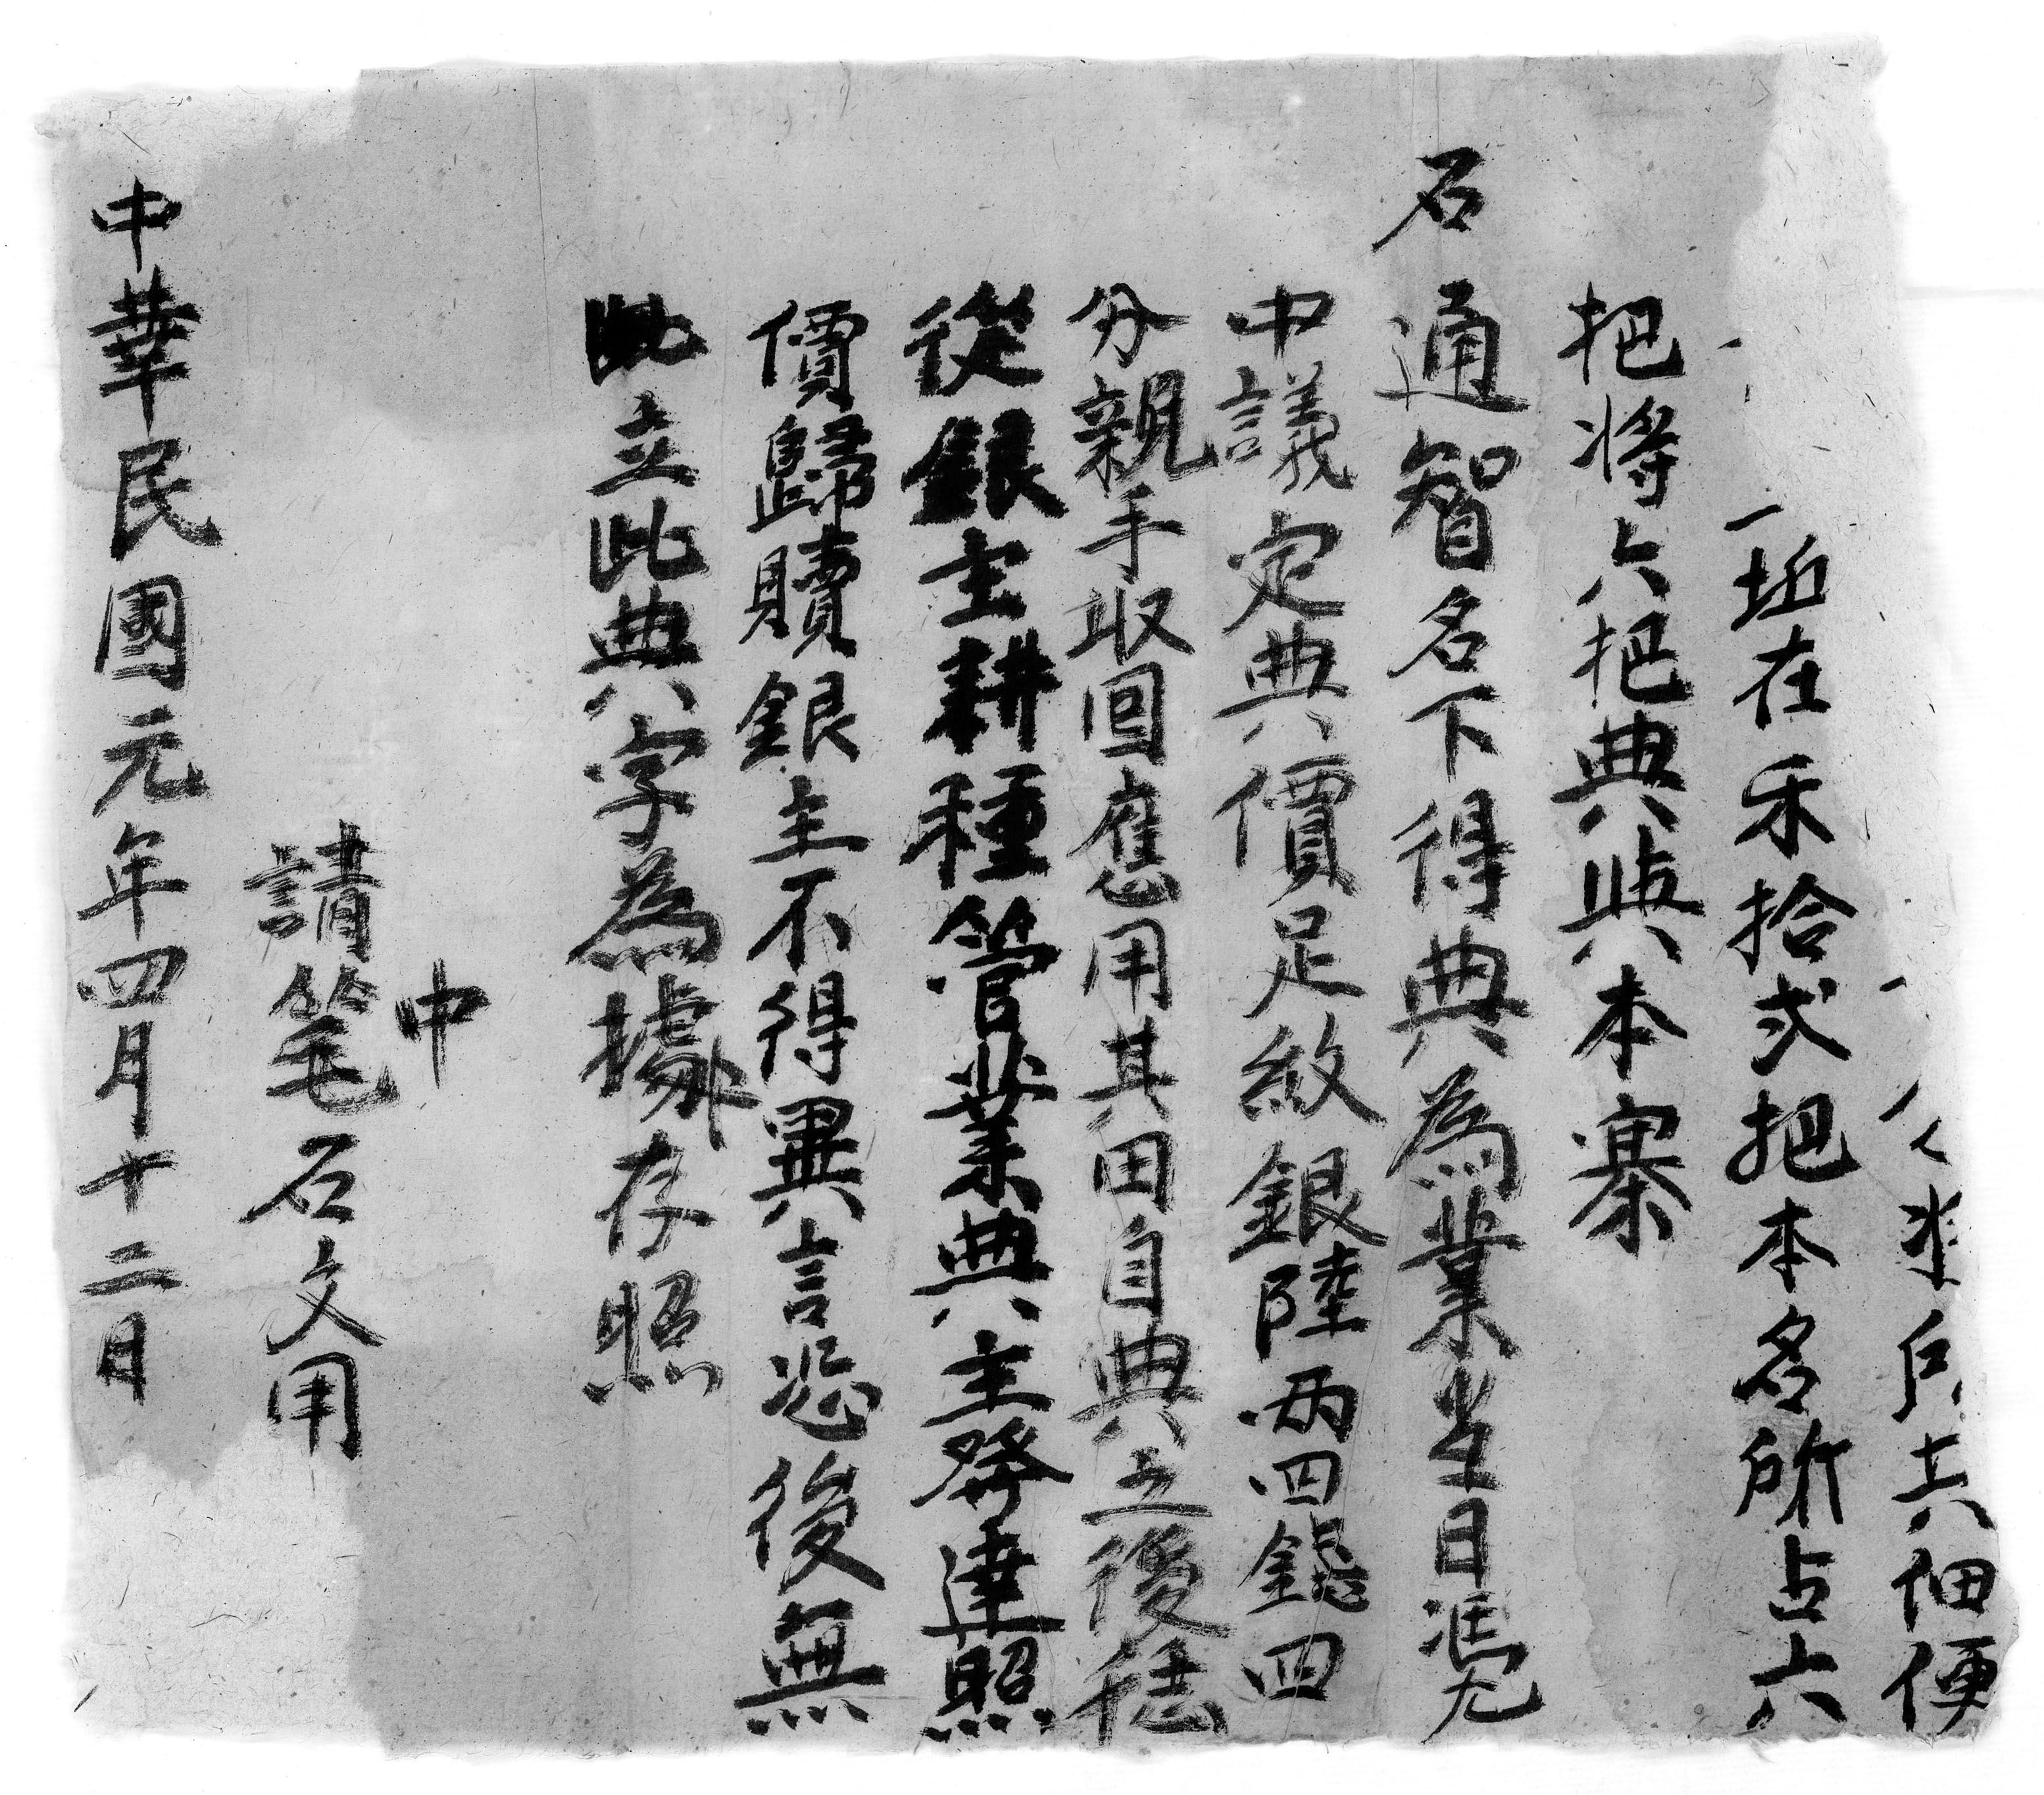 戶共佃便
一坵在禾拾弍把本名所占六
把将六把典與本寨
石通智名下得典為業当日憑
中議定典價足紋銀陸両四錢四
分親手收回應用其田自典之後任
從銀主耕種管業典主發達照
價歸贖銀主不得異言恐後無
此立此典字為據存照
中
請笔石文用
中華民國元年四月十二日